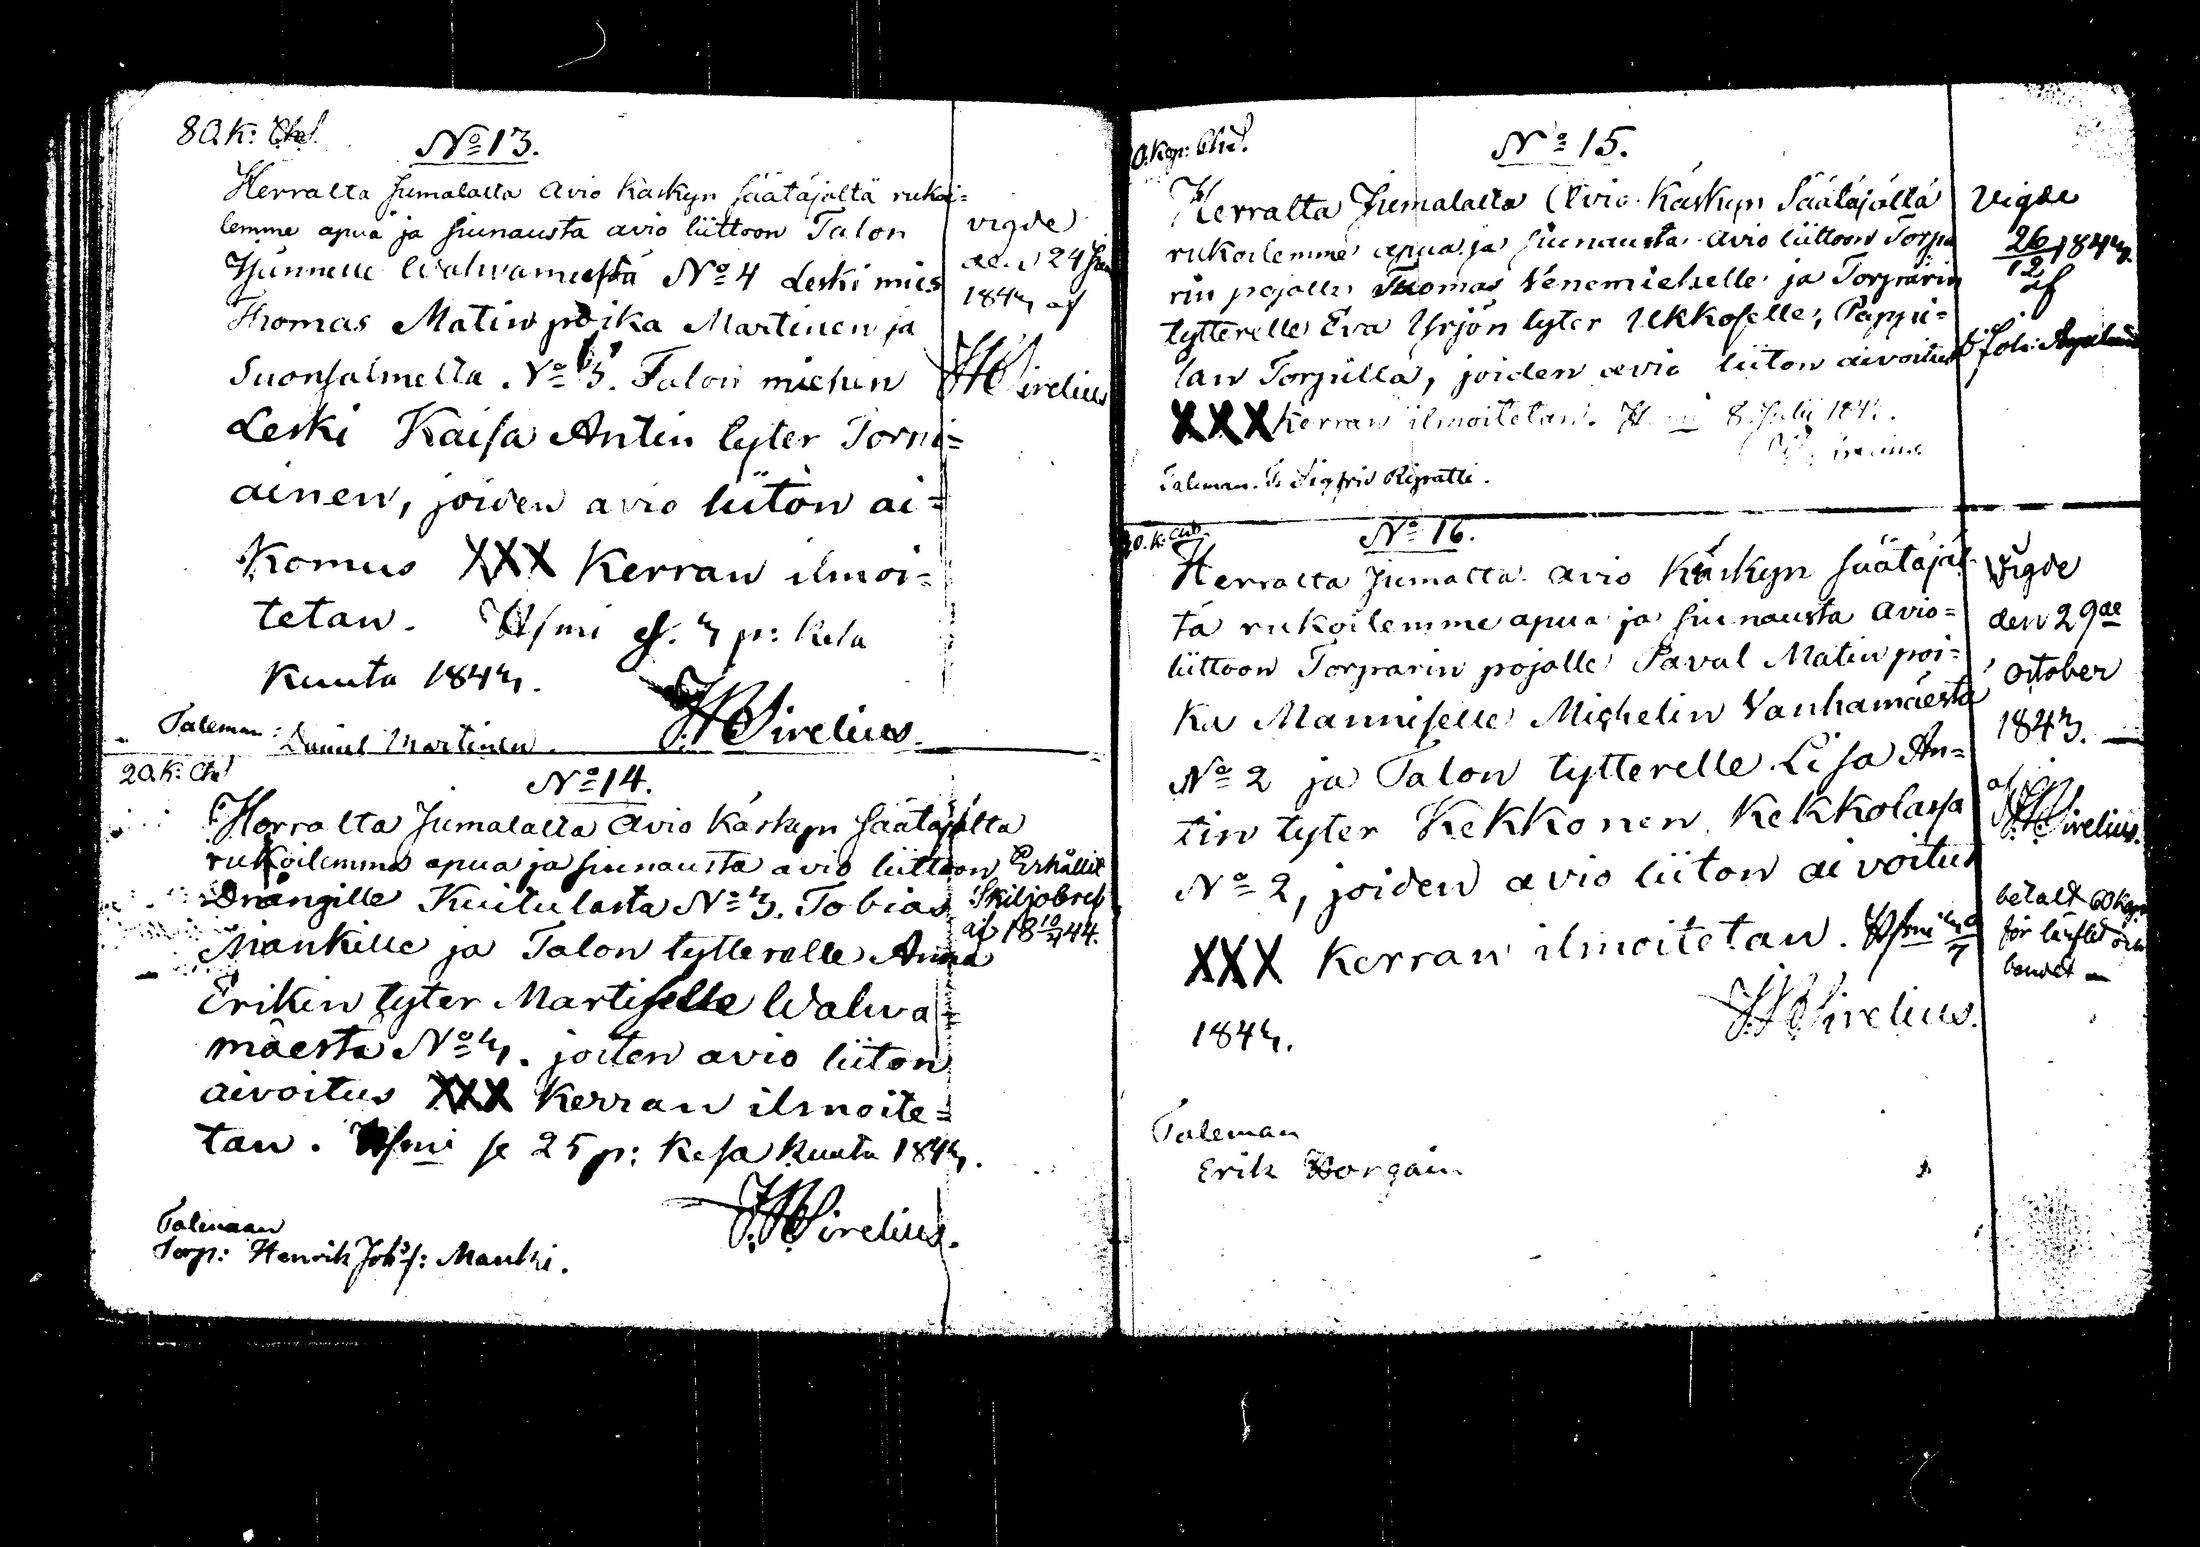 80. K: Chd.
No 13.
Herralta Jumalalta avio käskyn säätäjältä rukoi=
lemme apua ja siunausta avio liittoon Talon
Isännelle Walvamiestä No 4 Leski mies
Thomas Matin poika Martinen ja
Suonsalmelta No 3. Talon miehen
Leski Kaisa Antin tyter Torni=
ainen, joiden avio liiton ai=
komus XXX Kerran ilmoi=
tetan. Hsmi 4 p: Kesa
kuuta 1843.
JHSirelius.
Taleman: Daniel Martinen.
vigde
de. 24 Jun
1843 af
JHSirelius
20. K: Chd
No 14.
Herralta Jumalalta avio käskyn säätäjältä
rukoilemme apua ja siunausta avio liittoon
Drängille Kuitulasta No 3. Tobias
Mankille ja Talon tytterelle Anna
Erikin tyter Martiselle Walva=
mäesta No 4. joiten avio liiton
aivoitus XXX Kerran ilmoite=
tan. Hsmi se 25 p: Kesa Kuuta 1843.
JHSirelius.
Talman
Torp: Henrik Johs: Manki.
Erhållit
Skiljobref
af 18 10/4 44.
0. Kop: Chd.
No 15.
Herralta Jumalalta Avio Käskyn Säätäjältä
rukoilemme apua ja siunausta avio liittoon Torpa
rin pojalle Tuomas Venemielselle ja Torparin
tytterelle Eva Yrjön tyter Ukkoselle, Pappi=
lan Torpilla, joiden avio liiton aivoitus
XXX kerran ilmoitetan. 8 Julii 184
Taleman. T. Sigfrid Ripatti.
Vigde
26/12 1843
af
Joh: Argelander
20. K: Chd.
No 16.
Herralta Jumalta avio Käskyn säätäjäl
tä rukoilemme apua ja siunausta avio=
liittoon Torparin pojalle Paval Matin poi=
ka Manniselle Michelin Vanhamäesta
No 2 ja Talon tytterelle Lisa An=
tin tyter Kekkonen Kekkolassa
No 2, joiden avio liiton aivoitus
XXX Kerran ilmoitetan. Hsmi
1843.
JHSirelius.
Taleman
Erik Borgain
Vigde
den 29de
October
1843.
af
JHSirelius.
betalt 60 Kop
för